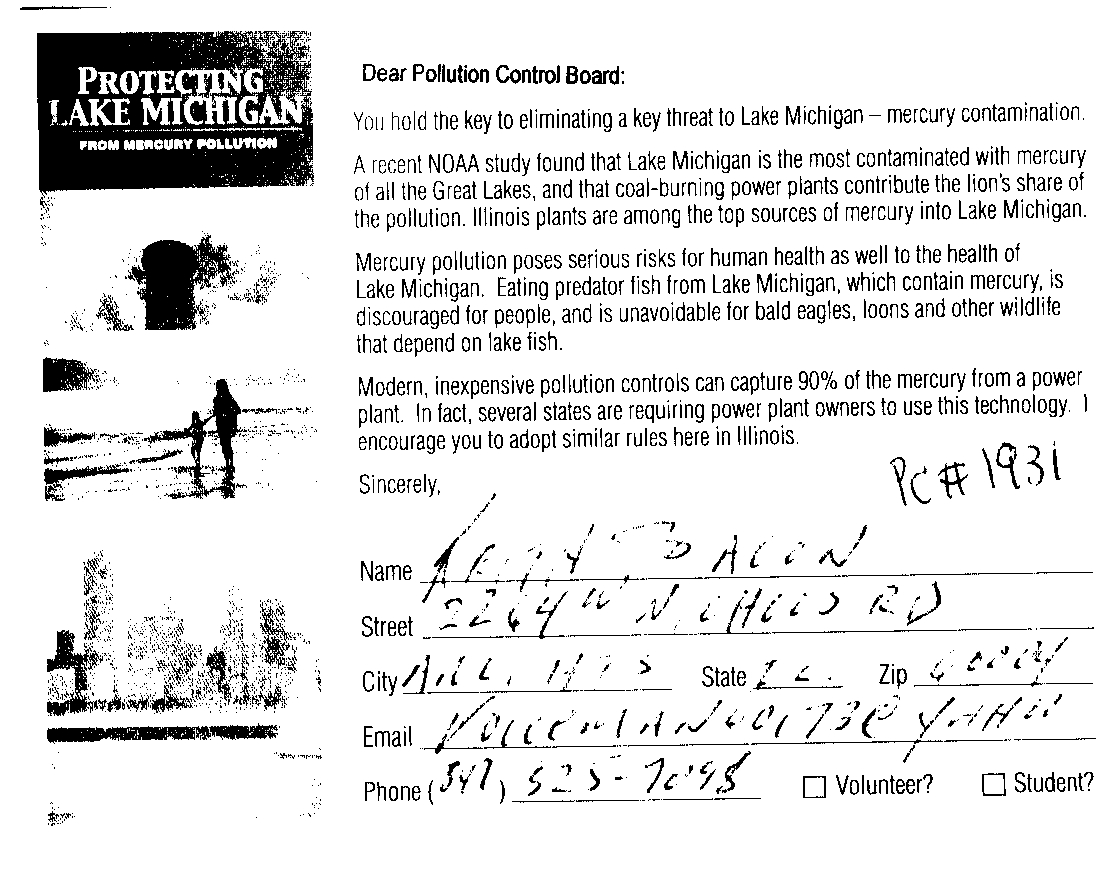 PROTECTING
LAKE MICHIGAN
FROM MERCURY POLLUTION
Dear Pollution Control Board:
You hold the key to eliminating a key threat to Lake Michigan – mercury contamination.
A recent NOAA study found that Lake Michigan is the most contaminated with mercury
of all the Great Lakes, and that coal-burning power plants contribute the lion's share of
the pollution. Illinois plants are among the top sources of mercury into Lake Michigan.
Mercury pollution poses serious risks for human health as well to the health of
Lake Michigan. Eating predator fish from Lake Michigan, which contain mercury, is
discouraged for people, and is unavoidable for bald eagles, loons and other wildlife
that depend on lake fish.
Modern, inexpensive pollution controls can capture 90% of the mercury from a power
plant. In fact, several states are requiring power plant owners to use this technology. I
encourage you to adopt similar rules here in Illinois.
Sincerely,
PC # 1931
Name BACON
Street 2264 W NICHOLS RD
City Arl. HTS State IL. Zip
Email
Phone ( ) 525-7098 Volunteer? Student?